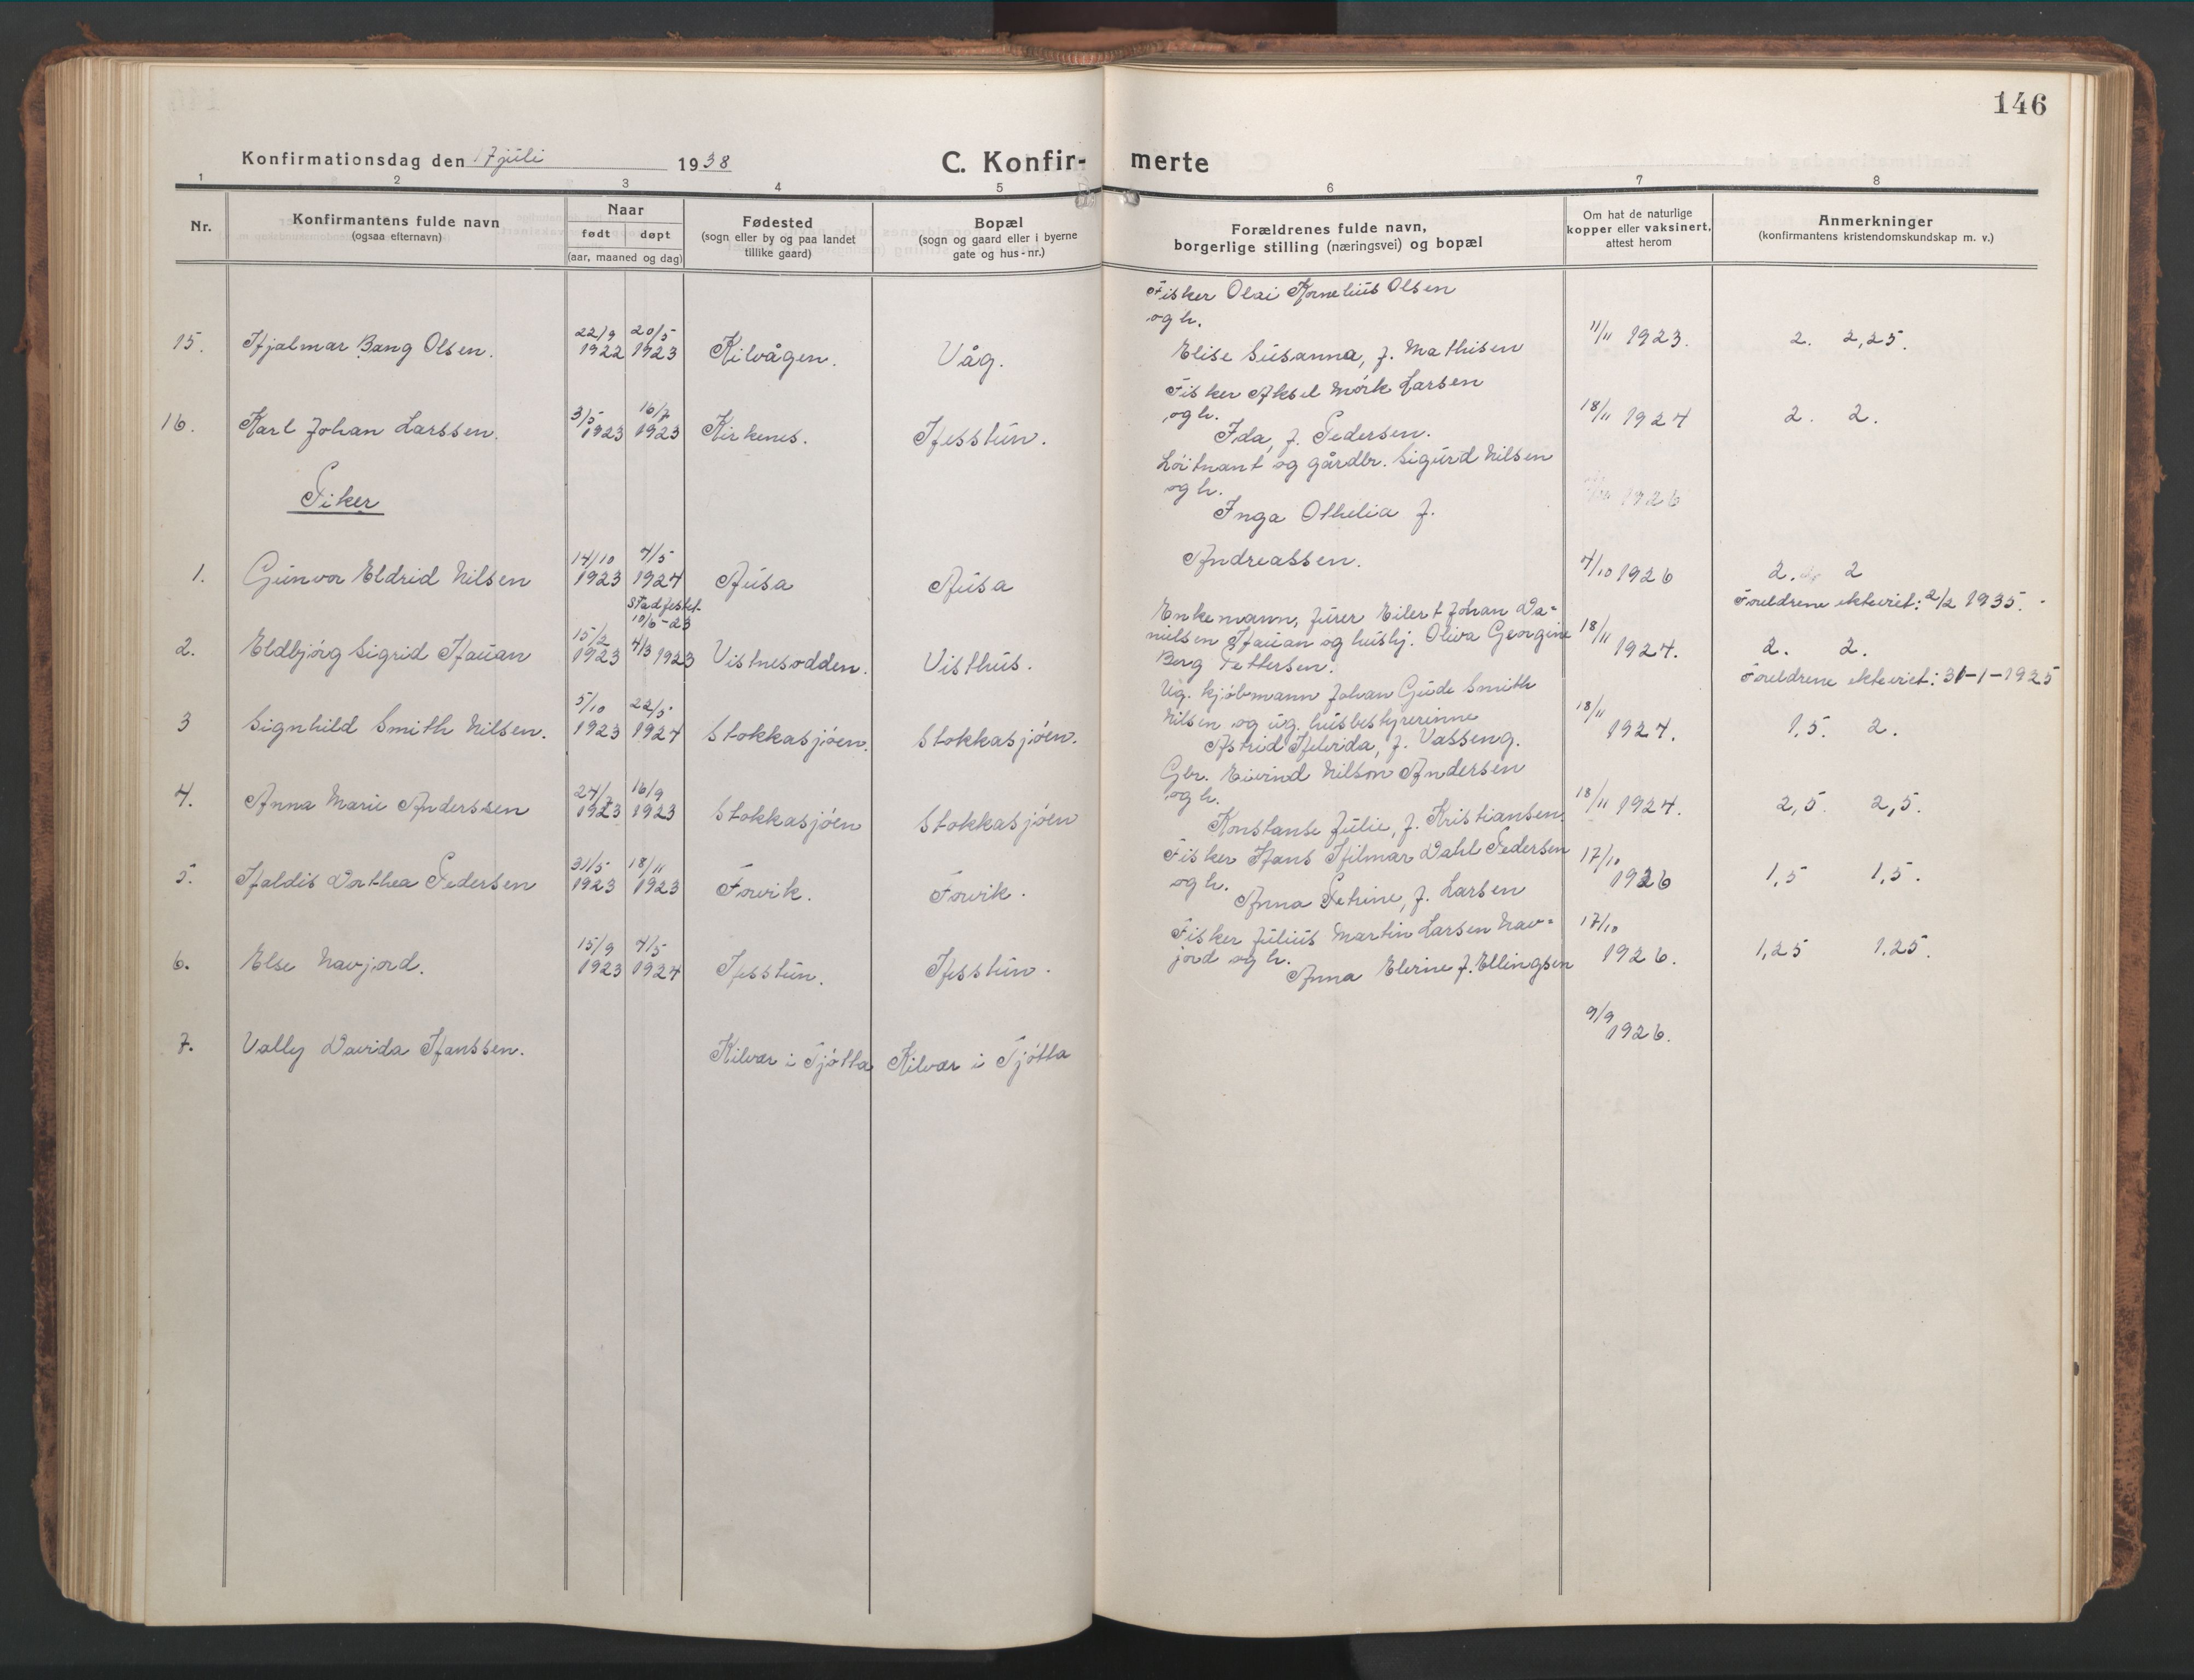 146
Konfirmationsdag den 17 juli 1938
C. Konfir- merte
1 2 3 4 5 6 7 8
Nr.
Konfirmantens fulde navn
(ogsaa efternavn)
Naar
født døpt
(aar, maaned og dag)
Fødested
(sogn eller by og paa landet
tillike gaard)
Bopæl
(sogn og gaard eller i byerne
gate og hus-nr.)
Forældrenes fulde navn,
borgerlige stilling (næringsvei) og bopæl
Om hat de naturlige
kopper eller vaksinert,
attest herom
Anmerkninger
(konfirmantens kristendomskundskap m. v.)
15. Hjalmar Bang Olsen. 22/9 1922 20/5 1923 Kilvågen. Våg.
Fisker Olai Kornelius Olsen
og h.
Elise Susanna, f. Mathisen
11/11 1923. 2. 2,25.
16. Karl Johan Larssen. 3/5 1923 16/7 1923 Kirkenes. Hesstun.
Fisker Aksel Mørk Larsen
og h.
Ida, f. Pedersen.
18/11 1924 2. 2.
Piker
Løitnant og gårdbr. Sigurd Nilsen
og h.
Inga Othelia f.
Andreassen.
1926
1. Gunvor Eldrid Nilsen 14/10 1923 4/5 1924 Ausa Ausa
4/10 1926 2. 2
Foreldrene ekteviet: 2/2 1935.
Stadfestet
10/6-23
2. Eldbjørg Sigrid Hauan 15/2 1923 4/3 1923 Vistnesodden. Visthus.
Enkemann, furer Eilert Johan Da=
nielsen Hauan og hushj. Oliva Georgine
Berg Pettersen.
18/11 1924. 2. 2.
Foreldrene ekteviet: 31-1-1925
3 Signhild Smith Nilsen. 5/10 1923 22/5 1924 Stokkasjøen. Stokkasjøen.
Ug. kjøbmann Johan Gude Smith
Nilsen og ug. husbestyrerinne
Astrid Helvida, f. Vasseng.
18/11 1924. 1,5. 2.
4. Anna Marie Anderssen 24/7 1923 16/9 1923 Stokkasjøen Stokkasjøen
Gbr. Eivind Nilson Andersen
og h.
Konstanse Julie, f. Kristiansen
18/11 1924. 2,5. 2,5.
5. Haldis Dorthea Pedersen 31/5 1923 18/11 1923 Forvik. Forvik.
Fisker Hans Hilmar Dahl Pedersen
og h.
Anna Petrine, f. Larsen
17/10 1926 1,5 1,5.
6. Else Navjord. 15/9 1923 4/5 1924 Hesstun. Hesstun.
Fisker Julius Martin Larsen Nav=
jord og h.
Anna Elerine f. Ellingsen
17/10 1926. 1,25 1,25.
7. Vally Davida Hanssen. Kilvær i Tjøtta Kilvær i Tjøtta
9/9 1926.